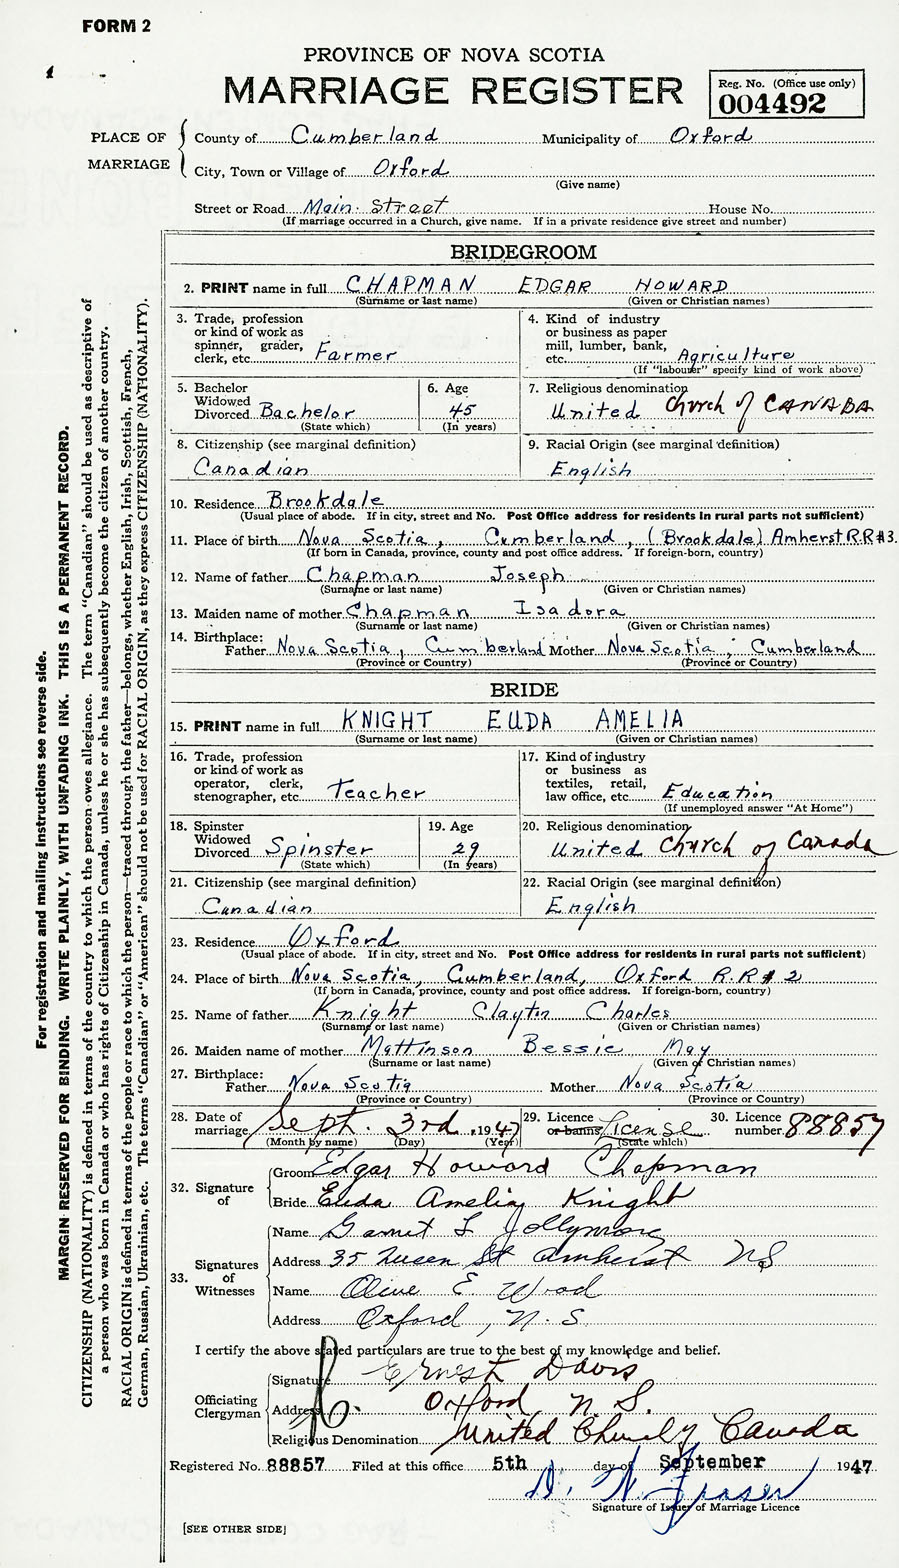 FORM 2
PROVINCE OF NOVA SCOTIA
MARRIAGE REGISTER
Reg. No. (Office use only)
004492
PLACE OF MARRIAGE
County of Cumberland Municipality of Oxford
City, Town or Village of Oxford
(Give name)
Street or Road Main Street House No.
(If marriage occurred in a Church, give name. If in a private residence give street and number)
BRIDEGROOM
2. PRINT name in full CHAPMAN EDGAR HOWARD
(Surname or last name) (Given or Christian names)
3. Trade, profession
or kind of work as
spinner, grader,
clerk, etc. Farmer
4. Kind of industry
or business as paper
mill, lumber, bank,
etc. Agriculture
(If "labourer" specify kind of work above)
5. Bachelor
Widowed
Divorced Bachelor
(State which)
6. Age
45
(In years)
7. Religious denomination
United Church of CANADA
8. Citizenship (see marginal definition)
Canadian
9. Racial Origin (see marginal definition)
English
10. Residence Brookdale
(Usual place of abode. If in city, street and No. Post Office address for residents in rural parts not sufficient)
11. Place of birth Nova Scotia, Cumberland, (Brookdale) Amherst R.R#3.
(If born in Canada, province, county and post office address. If foreign-born, country)
12. Name of father Chapman Joseph
(Surname or last name) (Given or Christian names)
13. Maiden name of mother Chapman Isadora
(Surname or last name) (Given or Christian names)
14. Birthplace:
Father Nova Scotia, Cumberland Mother Nova Scotia, Cumberland
(Province or Country) (Province or Country)
BRIDE
15. PRINT name in full KNIGHT EUDA AMELIA
(Surname or last name) (Given or Christian names)
16. Trade, profession
or kind of work as
operator, clerk,
stenographer, etc. Teacher
17. Kind of industry
or business as
textiles, retail,
law office, etc. Education
(If unemployed answer "At Home")
18. Spinster
Widowed
Divorced Spinster
(State which)
19. Age
29
(In years)
20. Religious denomination
United Church of Canada
21. Citizenship (see marginal definition)
Canadian
22. Racial Origin (see marginal definition)
English
23. Residence Oxford
(Usual place of abode. If in city, street and No. Post Office address for residents in rural parts not sufficient)
24. Place of birth Nova Scotia, Cumberland, Oxford R.R # 2
(If born in Canada, province, county and post office address. If foreign-born, country)
25. Name of father Knight Clayton Charles
(Surname or last name) (Given or Christian names)
26. Maiden name of mother Mattinson Bessie May
(Surname or last name) (Given or Christian names)
27. Birthplace:
Father Nova Scotia Mother Nova Scotia
(Province or Country) (Province or Country)
28. Date of
marriage Sept. 3rd, 1947
(Month by name) (Day) (Year)
29. Licence
or banns License
(State which)
30. Licence
number 88857
32. Signature of
Groom Edgar Howard Chapman
Bride Euda Amelia Knight
33. Signatures of Witnesses
Name Garnet L Jollymore
Address 35 Queen St Amherst NS
Name Olive E. Wood
Address Oxford, N.S.
I certify the above stated particulars are true to the best of my knowledge and belief.
Officiating Clergyman
Signature Ernest Davis
Address Oxford, N S.
Religious Denomination United Church of Canada
Registered No. 88857 Filed at this office 5th day of September 1947
D. N. Fraser
Signature of Issuer of Marriage Licence
[SEE OTHER SIDE]
For registration and mailing instructions see reverse side.
MARGIN RESERVED FOR BINDING. WRITE PLAINLY, WITH UNFADING INK. THIS IS A PERMANENT RECORD.
CITIZENSHIP (NATIONALITY) is defined in terms of the country to which the person owes allegiance. The term "Canadian" should be used as descriptive of
a person who was born in Canada or who has rights of Citizenship in Canada, unless he or she has subsequently become the citizen of another country.
RACIAL ORIGIN is defined in terms of the people or race to which the person—traced through the father—belongs, whether English, Irish, Scottish, French,
German, Russian, Ukrainian, etc. The terms "Canadian" or "American" should not be used for RACIAL ORIGIN, as they express CITIZENSHIP (NATIONALITY).